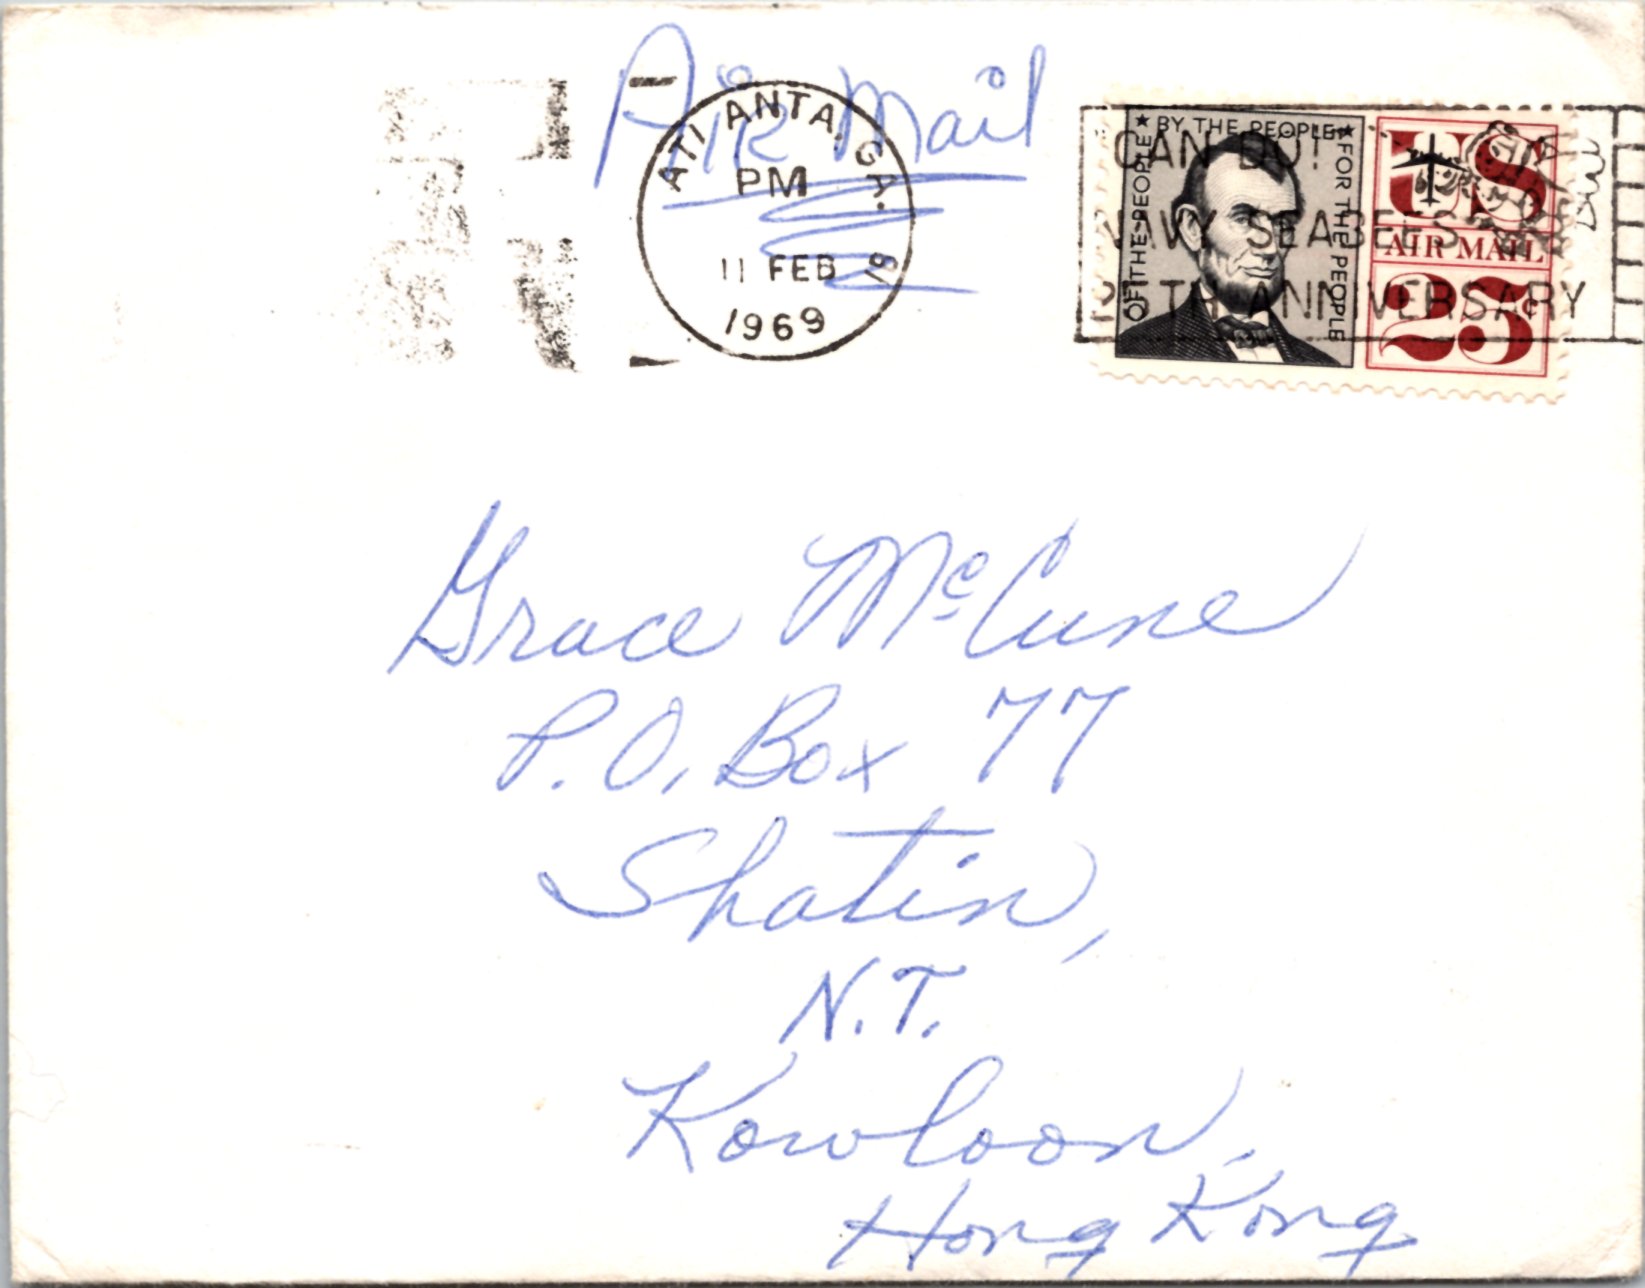 Air Mail
ATLANTA, GA.
PM
11 FEB
1969
CAN DO!
NAVY SEABEES
TH ANNIVERSARY
OF THE PEOPLE ★ BY THE PEOPLE ★ FOR THE PEOPLE
US
AIR MAIL
25¢
Grace McCune
P.O. Box 77
Shatin,
N.T.
Kowloon,
Hong Kong